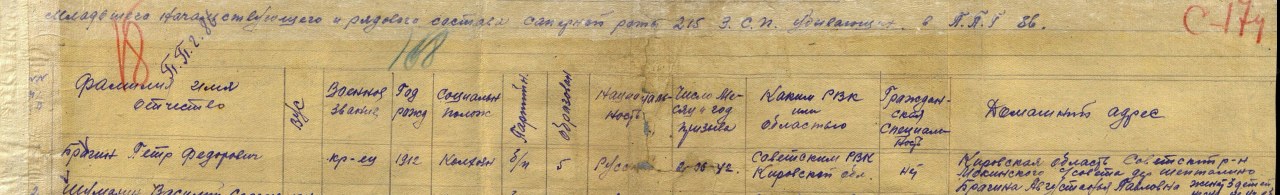 Младшего начальствующего и рядового состава саперной роты 215 З.С.П. убывающих в П.П.Г 86.
18
П.П.Г. 86
168
С-174
Фамилия имя отчество
В/С
Военное звание
Год рожд
Социальн полож
Партийн.
Образован
Националь-ность
Число ме-сяц и год призыва
Каким РВК или областью
Граждан-ская специаль-ность
Домашний адрес
Брагин Петр Федорович
кр-ец
1912
Колхозн
б/п
5
Русс
Советским РВК
Кировской обл.
Кировская область Советский р-н
с/совета дер
Брагина Августа Павловна жена 3 детей
Шумалин Василий